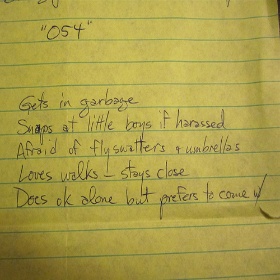 "054"
Gets in garbage
Snaps at little boys if harassed
Afraid of flyswatters + umbrellas
Loves walks - stays close
Does ok alone but prefers to come w/